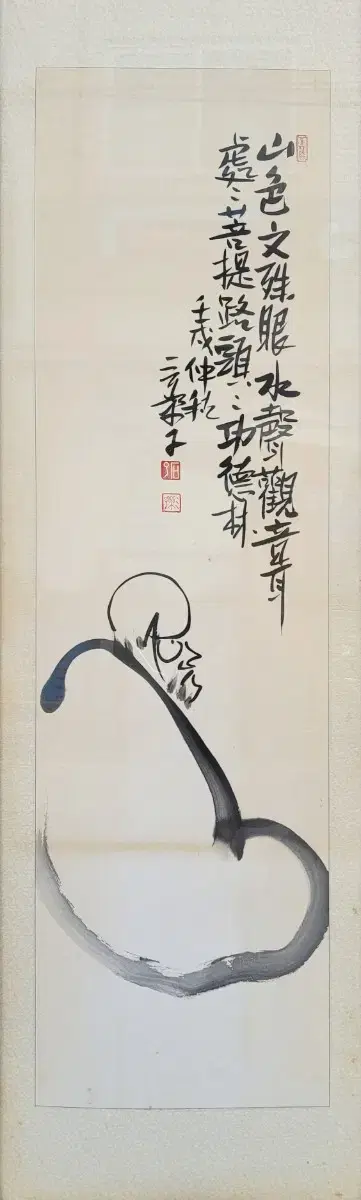 山色文殊眼水聲觀音耳
處〻菩提路頭〻功德林
壬戌仲秋